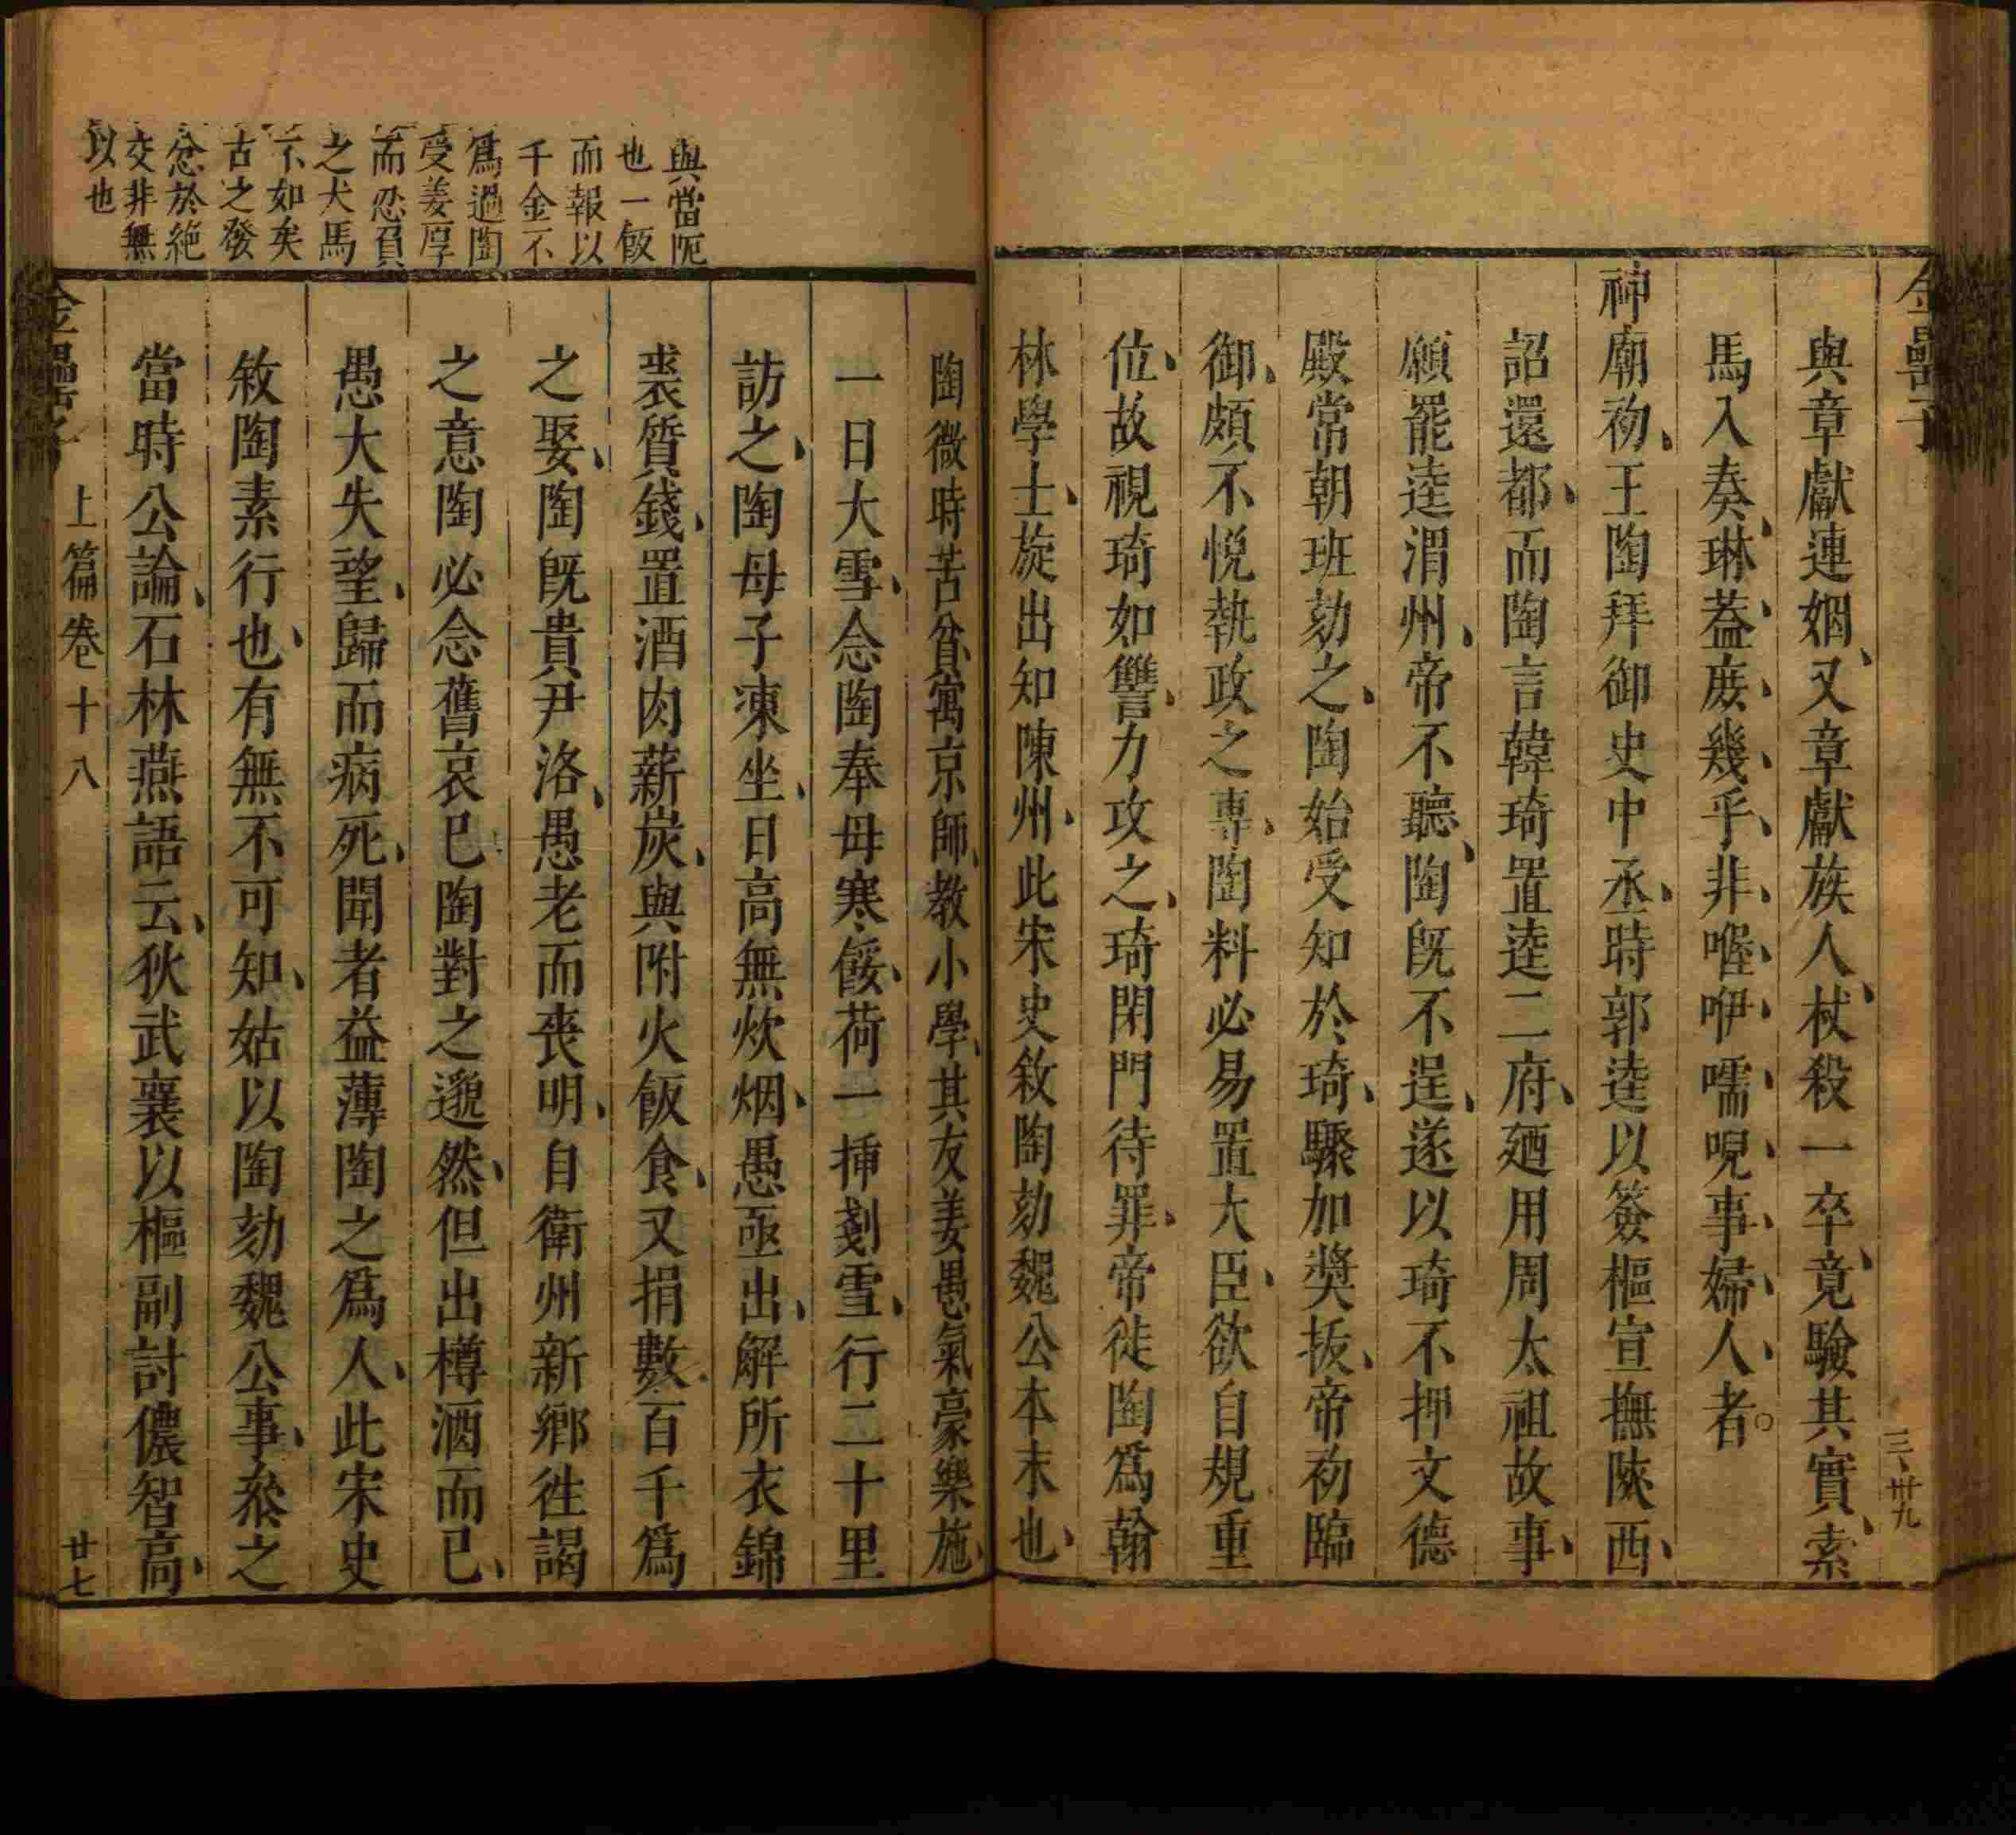 金罍子
三、卅九
與章獻連姻、又章獻族人、杖殺一卒、竟驗其實、索
馬入奏、琳、蓋、庻、幾、乎、非、喔、咿、嚅、唲、事、婦、人、者。
神廟初、王陶拜御史中丞、時郭逵以簽樞宣撫陝西、
詔還都、而陶言韓琦置逵二府、廼用周太祖故事、
願罷逵渭州、帝不聽、陶既不逞、遂以琦不押文德
殿常朝班劾之、陶始受知於琦、驟加奬拔、帝初臨
御、頗不悅執政之專、陶料必易置大臣、欲自規重
位、故視琦如讐、力攻之、琦閉門待罪、帝徙陶爲翰
林學士、旋出知陳州、此宋史敘陶劾魏公本末也、
陶微時苦貧寓京師、教小學、其友姜愚氣豪樂施、
一日大雪、念陶奉母寒餒、荷一揷剗雪、行二十里
訪之、陶母子凍坐、日高無炊烟、愚亟出、解所衣錦
裘質錢、置酒肉薪炭、與附火飯食、又捐數百千爲
之娶、陶既貴尹洛、愚老而喪明、自衛州新鄉徃謁
之意陶必念舊哀巳陶對之邈然、但出樽酒而已、
愚大失望、歸而病死、聞者益薄陶之爲人、此宋史
敘陶素行也、有無不可知、姑以陶劾魏公事、叅之
當時公論、石林燕語云、狄武襄以樞副討儂智高、
與當阨
也一飯
而報以
千金不
爲過陶
受姜厚
而忍負
之犬馬
不如矣
古之發
忿於絶
交非無
以也
金罍子
上篇卷十八
廿七